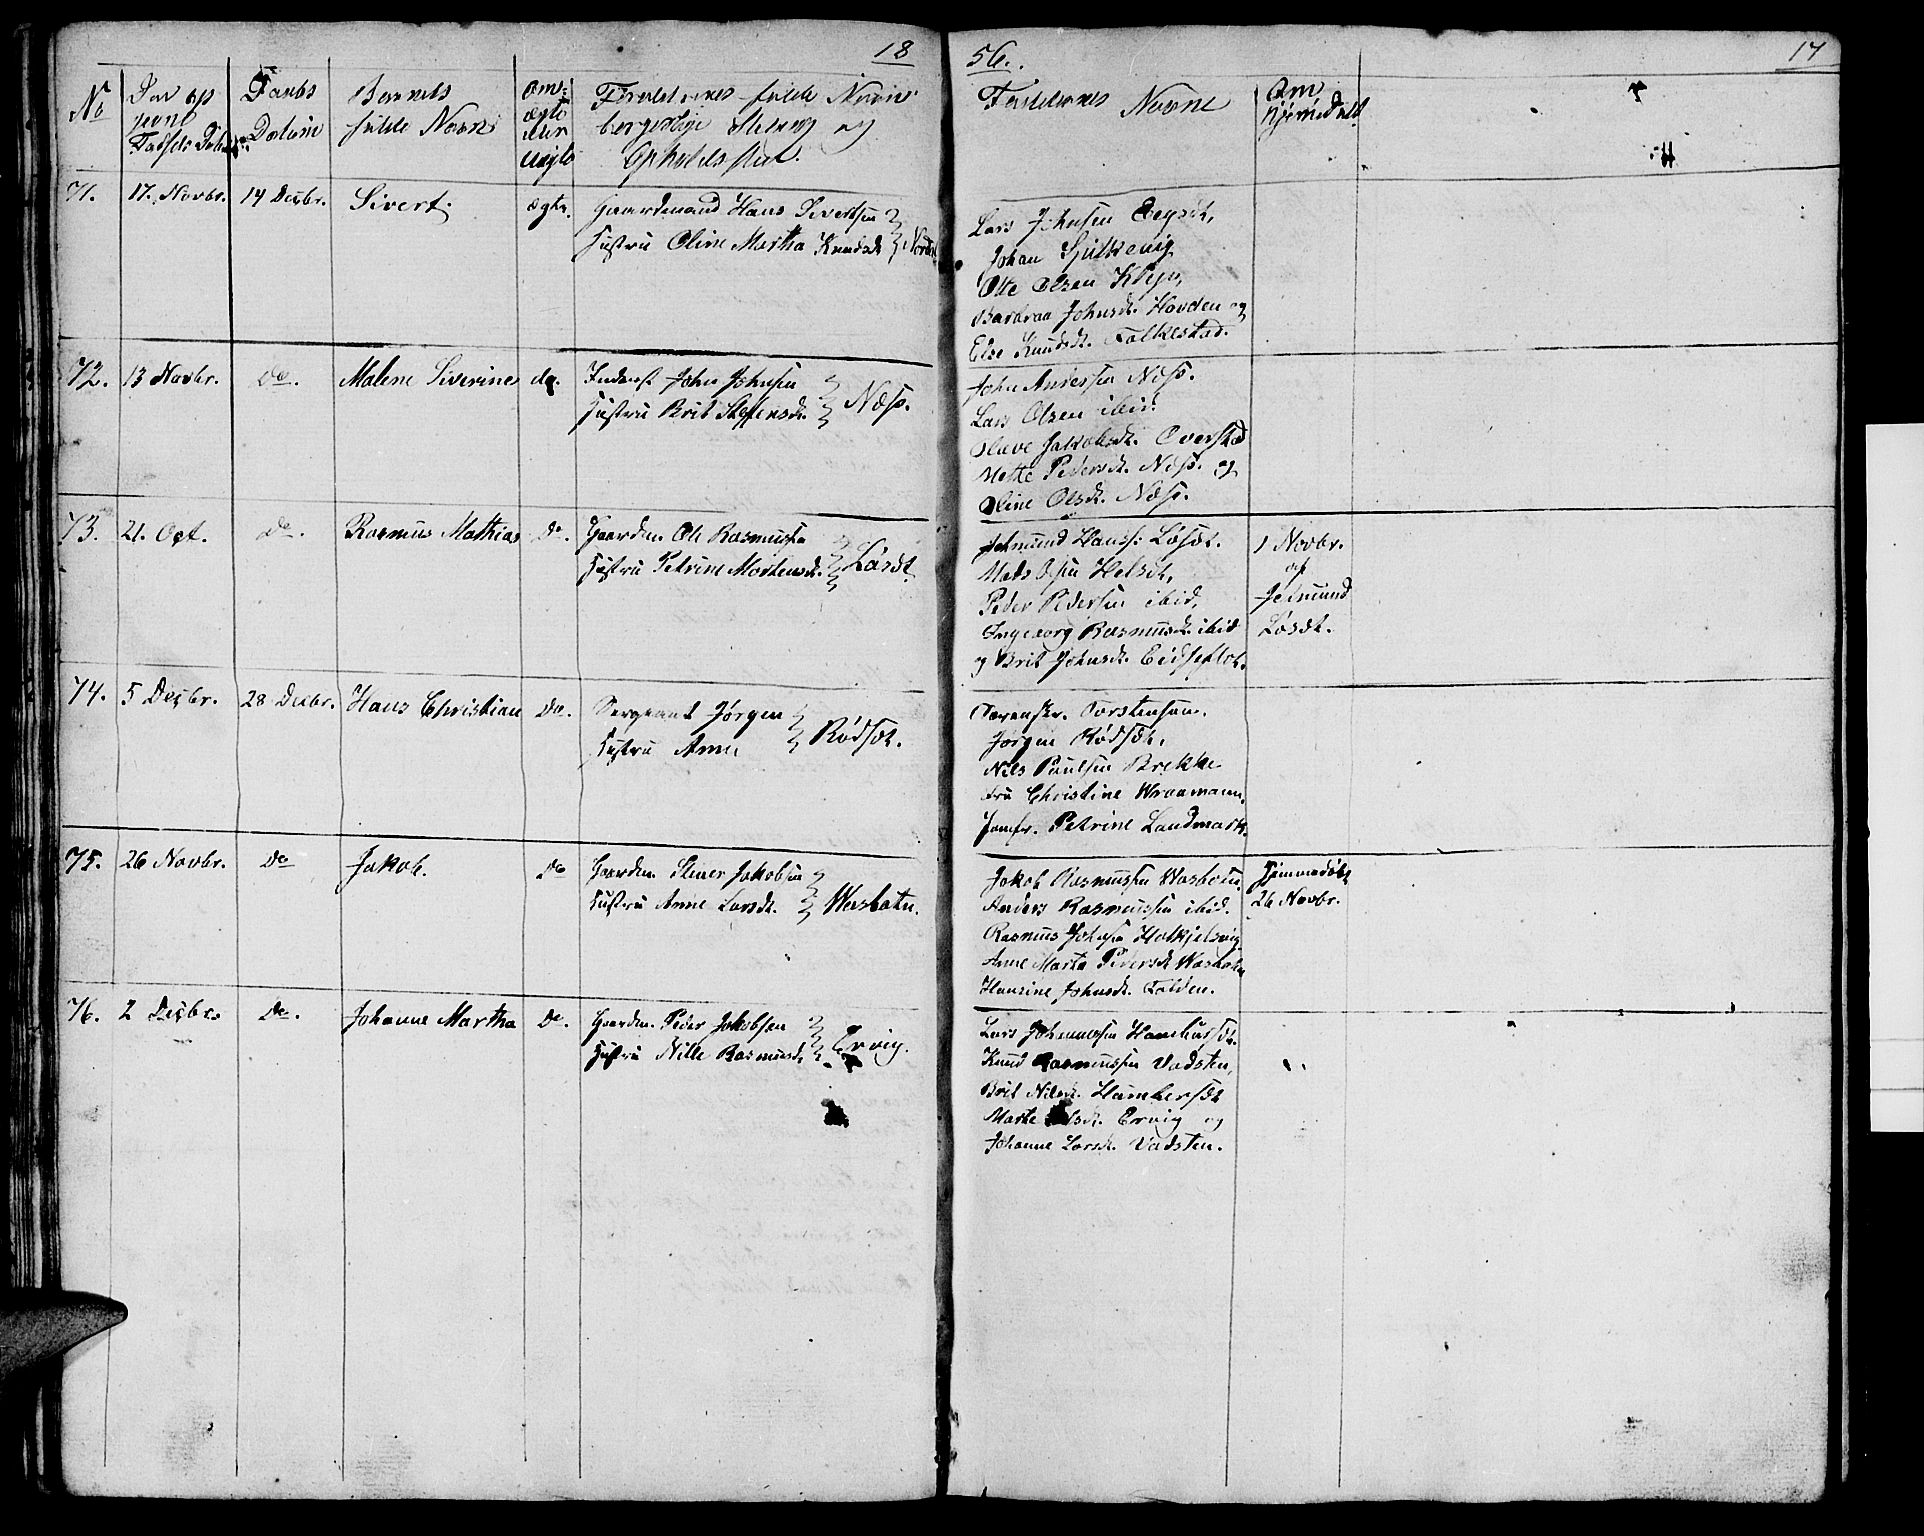 18
56.
17
No
Daabs
Datum
Barnets
fulde Navn
Om
ægte
eller
uægte
Forældrenes fulde Navne
borgerlige Stilling og
Opholdssted.
Faddernes Navne
Om
hjemmedøbt
71.
17. Novbr.
14 Decbr.
Sivert.
ægte.
Gaardmand Hans Sivertsen
Hustru Oline Martha Knudsdt.
Lars Johnsen
Johan
Otte Olsen
Barbraa Johnsdt. Hovden og
Else Knudsdt. Folkestad.
72.
13 Novbr.
do.
Malene Siverine
do.
Inderst John Johnsen
Hustru Brit Steffensdt.
Næss.
John Andersen Næss.
Lars Olsen ibid.
Olave Jakobsdt.
Mette Pedersdt. Næss. og
Oline Olsdt. Næss.
73.
21. Oct.
do.
Rasmus Mathias
do.
Gaardm. Ole Rasmussen
Hustru Petrine Mortensdt.
Løsæt
Jetmund Hanss. Løsæt.
Mads Olsen Helsæt,
Peder Pedersen ibid,
Ingeborg Rasmusdt. ibid
og Brit Johnsdt. Eidseflot.
1 Novbr.
af
Jetmund
Løsæt.
74.
5 Decbr.
28 Decbr.
Hans Christian
do.
Sergeant Jørgen
Hustru Anne
Rødsæt.
Jørgen Rødsæt,
Nils Paulsen Brekke
Fru Christine Wraamann.
Jomfr. Petrine Landmark.
75.
26 Novbr.
do
Jakob.
do
Gaardm. Stener Jakobsen
Hustru Anne Larsdt.
Wasbotn.
Jakob Rasmussen Wasbotn.
Anders Rasmussen ibid.
Rasmus Johnsen
Anne Marta Pedersdt Wasbotn
Hansine Johnsdt. Folden.
Hjemmedøbt
26 Novbr.
76.
2 Decbr.
do.
Johanne Martha
do.
Gaardm. Peder Jakobsen
Hustru Nille Rasmusdt.
Ervig.
Lars Johannessen
Knud Rasmussen Vadsten,
Brit Nilsdt. Hambersæt
Marte Olsdt. Ervig og
Johanne Larsdt. Vadsten.